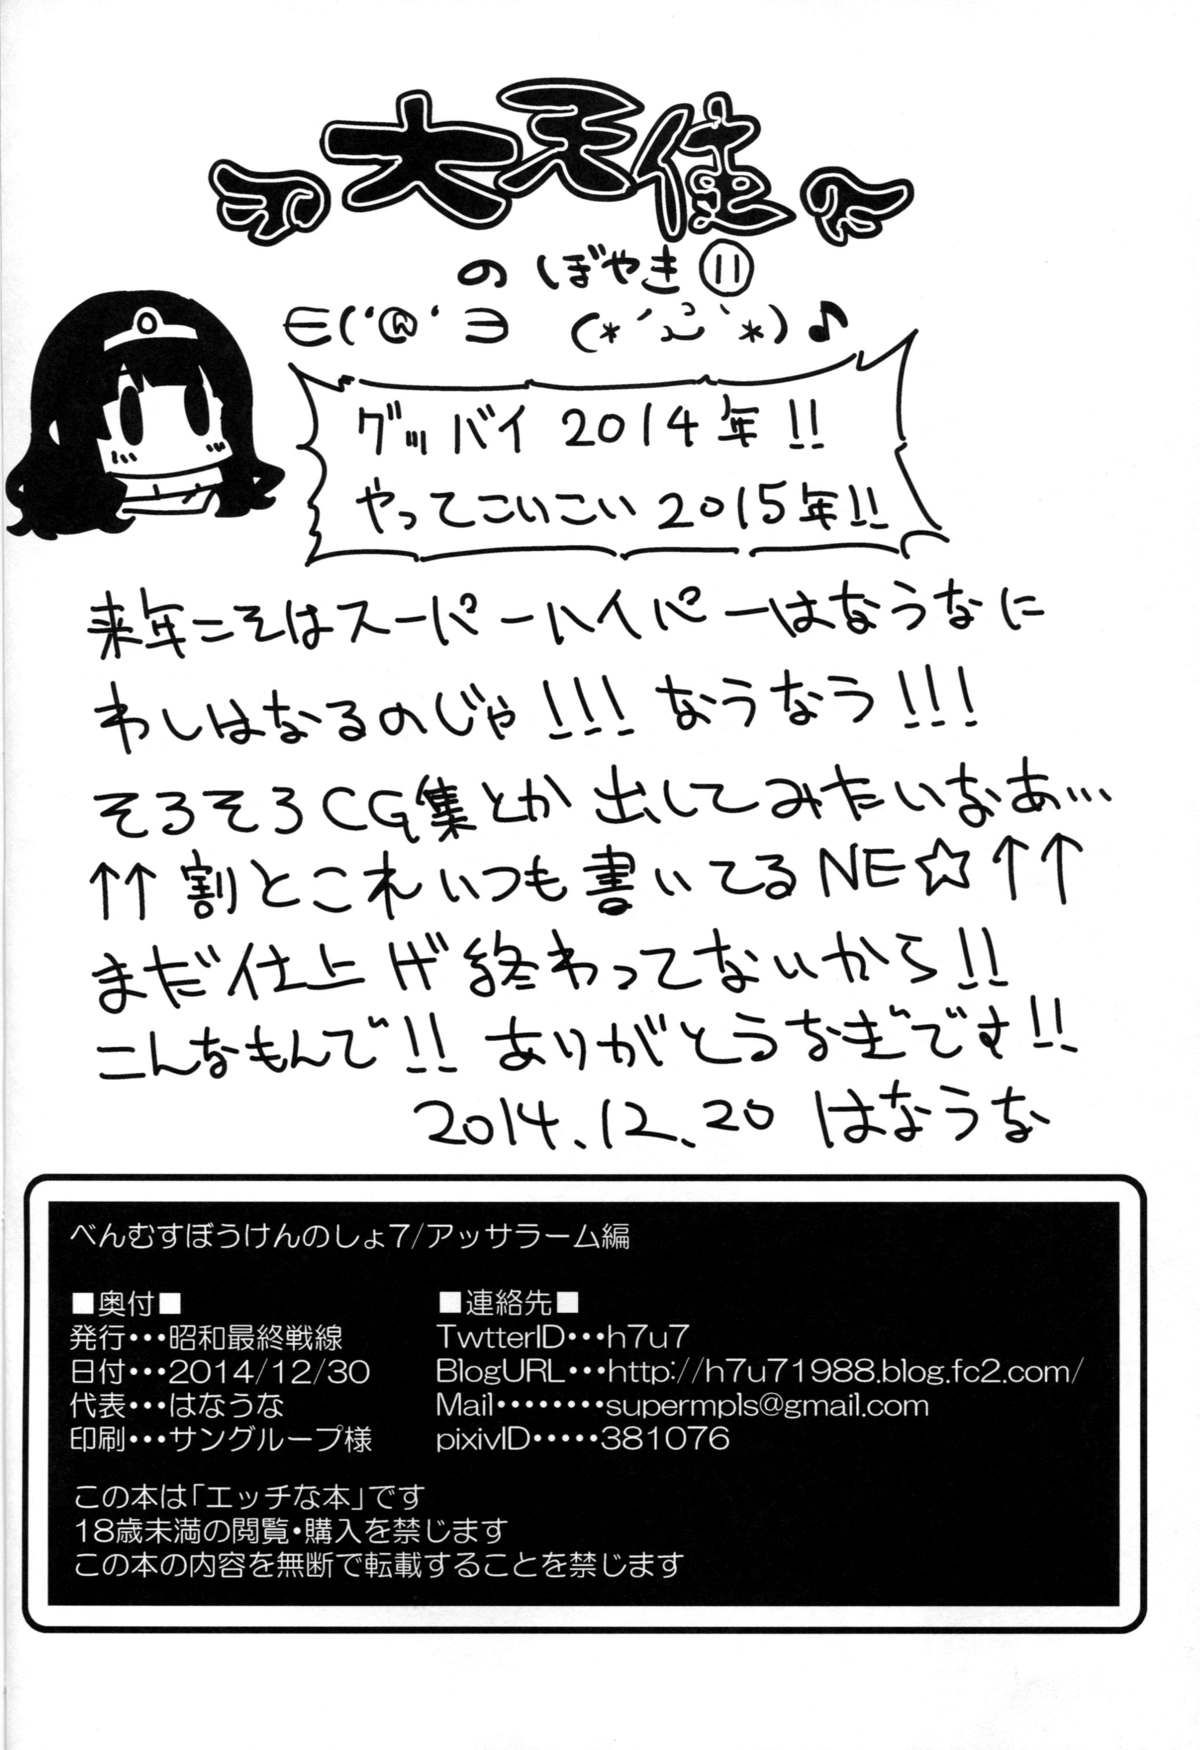 大天使
のぼやき⑪
∈(‘@‘∋ (*´ω`*)♪
グッバイ2014年!!
やってこいこい2015年!!
来年こそはスーパーハイパーはなうなに
わしはなるのじゃ!!!なうなう!!!
そろそろCG集とか出してみたいなあ…
↑↑割とこれいつも書いてるNE☆↑↑
まだ仕上げ終わってないから!!
こんなもんで!!ありがとうなぎです!!
2014.12.20 はなうな
べんむすぼうけんのしょ7/アッサラーム編
■奥付■
発行・・・昭和最終戦線
日付・・・2014/12/30
代表・・・はなうな
印刷・・・サングループ様
■連絡先■
TwtterID・・・h7u7
BlogURL・・・http://h7u71988.blog.fc2.com/
Mail・・・・・・・・supermpls@gmail.com
pixivID・・・・・381076
この本は「エッチな本」です
18歳未満の閲覧・購入を禁じます
この本の内容を無断で転載することを禁じます